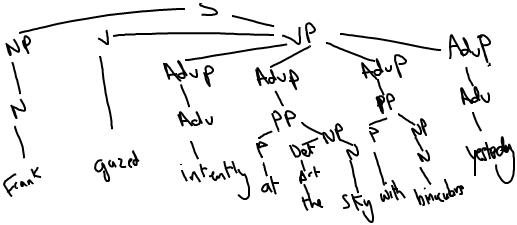 S
NP V VP AdvP
AdvP AdvP AdvP
N Adv PP PP Adv
P NP P NP
Det N N
Art
Frank gazed intently at the sky with binoculars yesterday